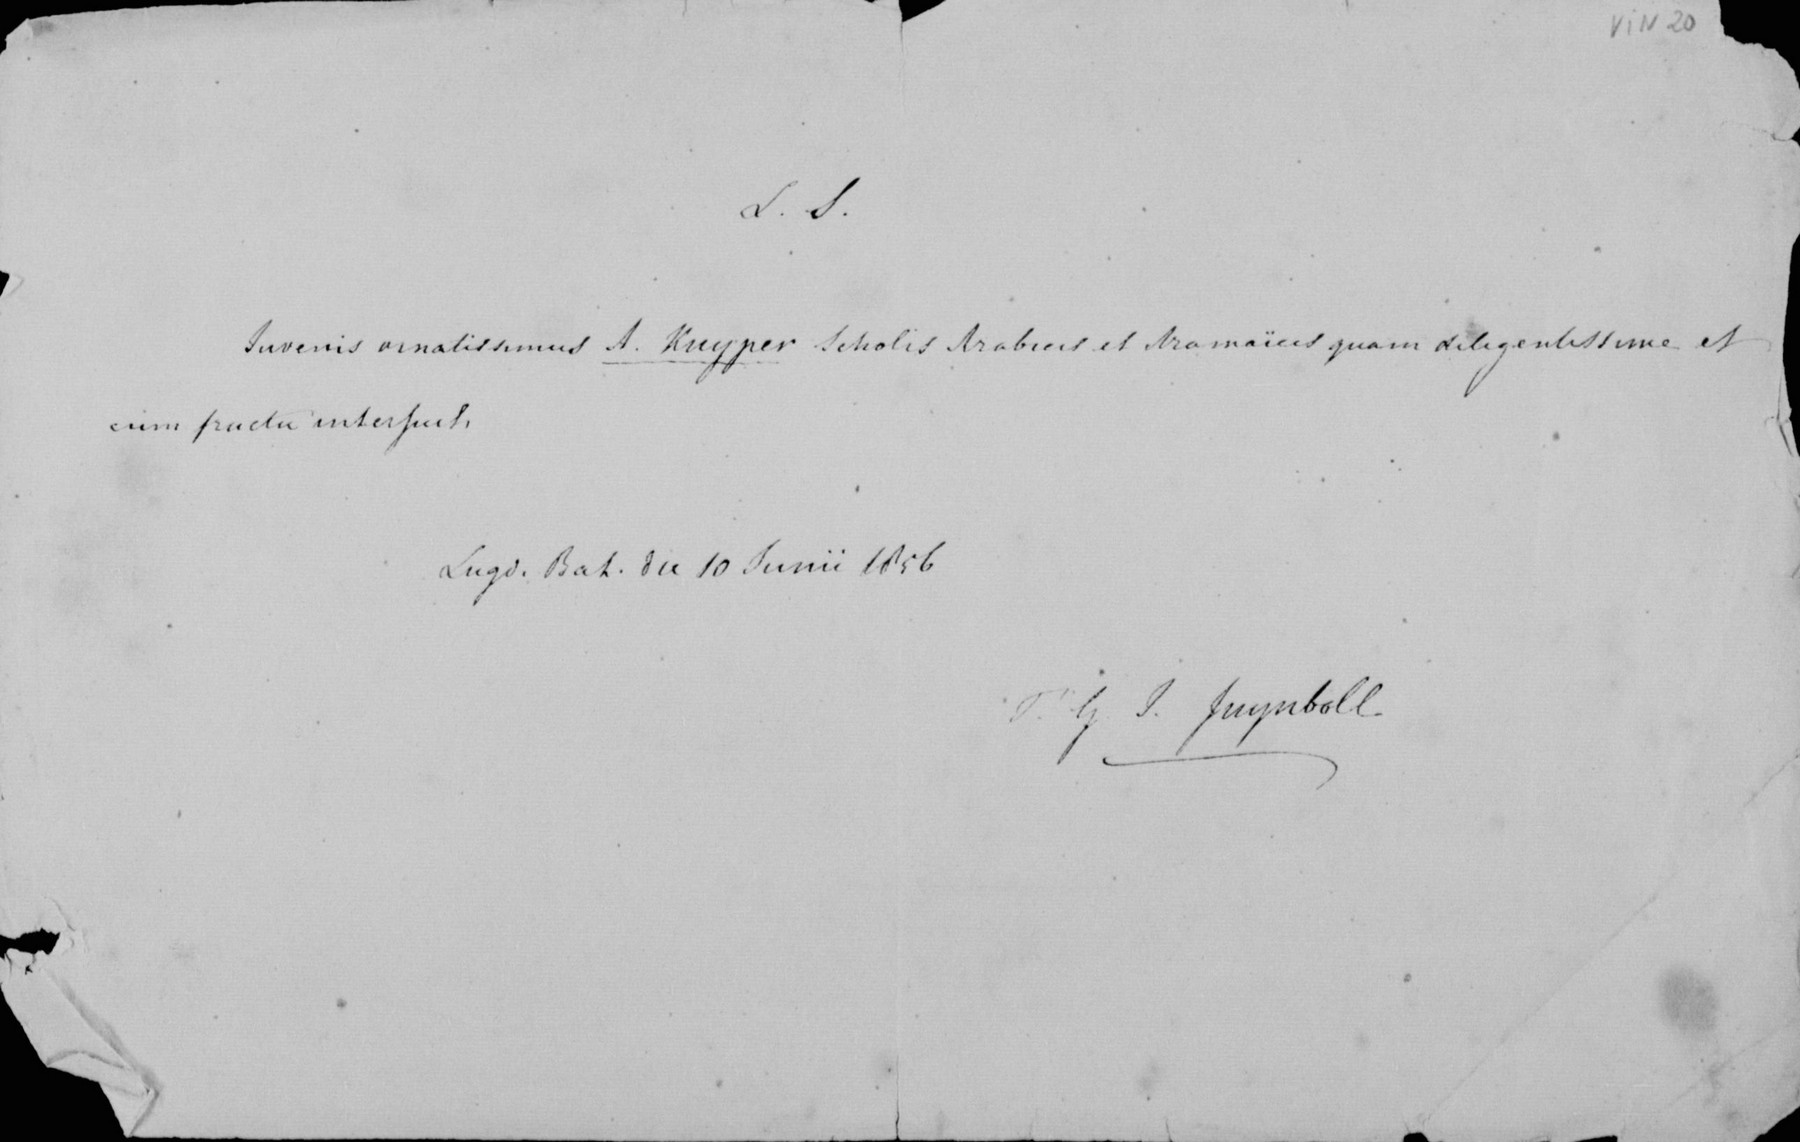 VIN 20
L. S.
Juvenis ornatissimus A. Kuyper Scholis Arabicis et Aramaïcis quam diligentissime et
cum fructu interfuit.
Lugd. Bat. die 10 Junii 1856
T. G. J. Juynboll